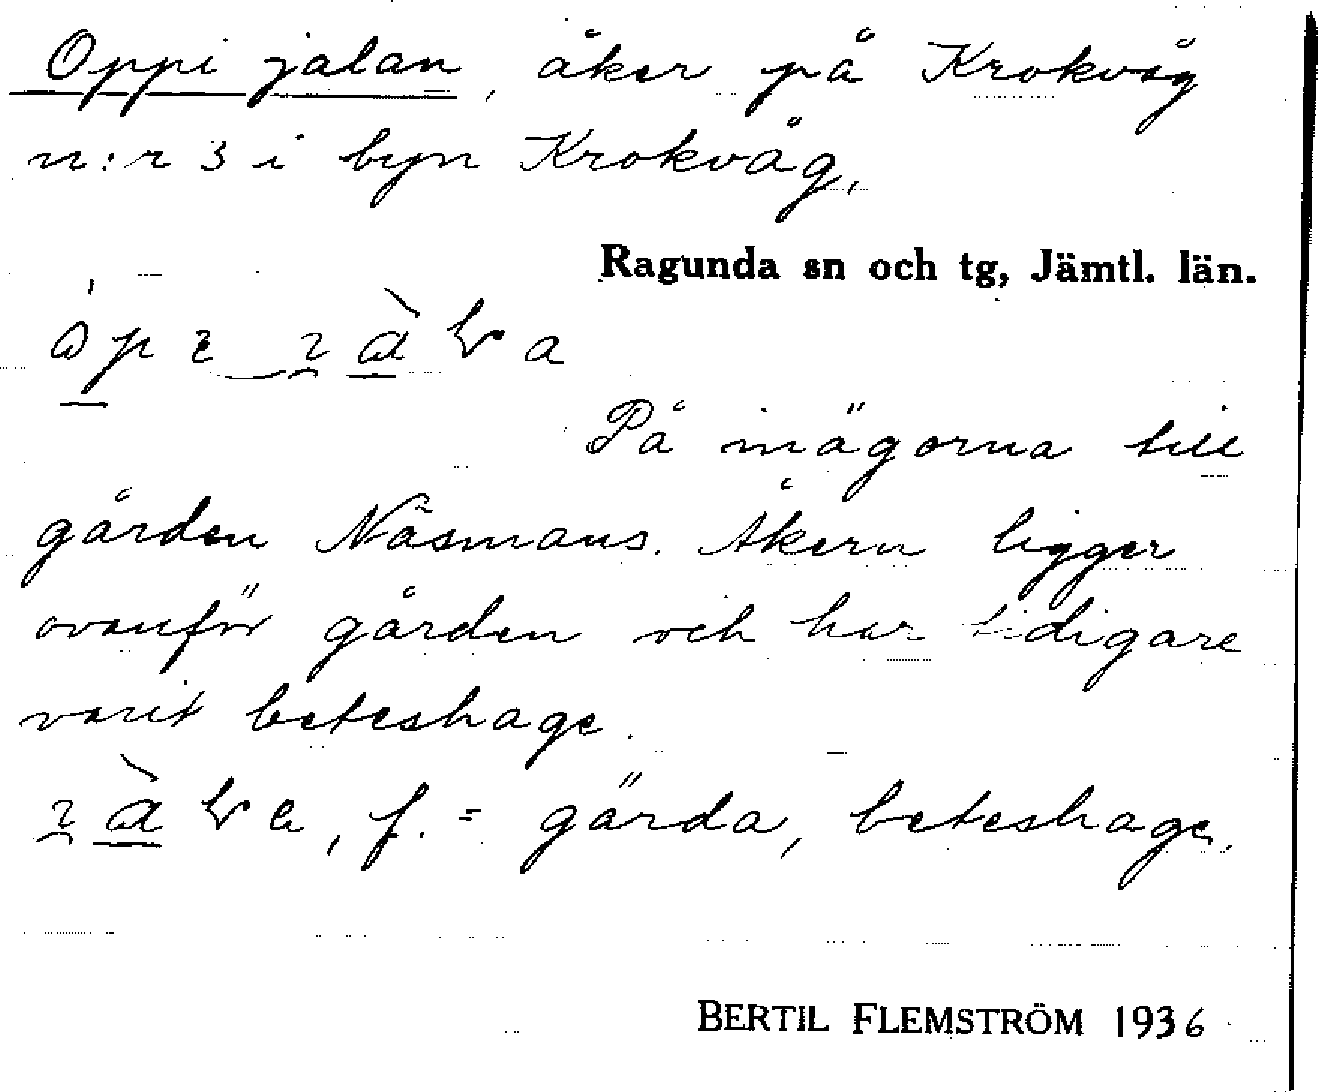 Oppi jalan, åker på Krokvåg
n:r 3 i byn Krokvåg,
Ragunda sn och tg, Jämtl. län.
På inägorna till
gården Näsmans. Åkern ligger
ovanför gården och har tidigare
varit beteshage.
f. = gärda, beteshage.
BERTIL FLEMSTRÖM 1936